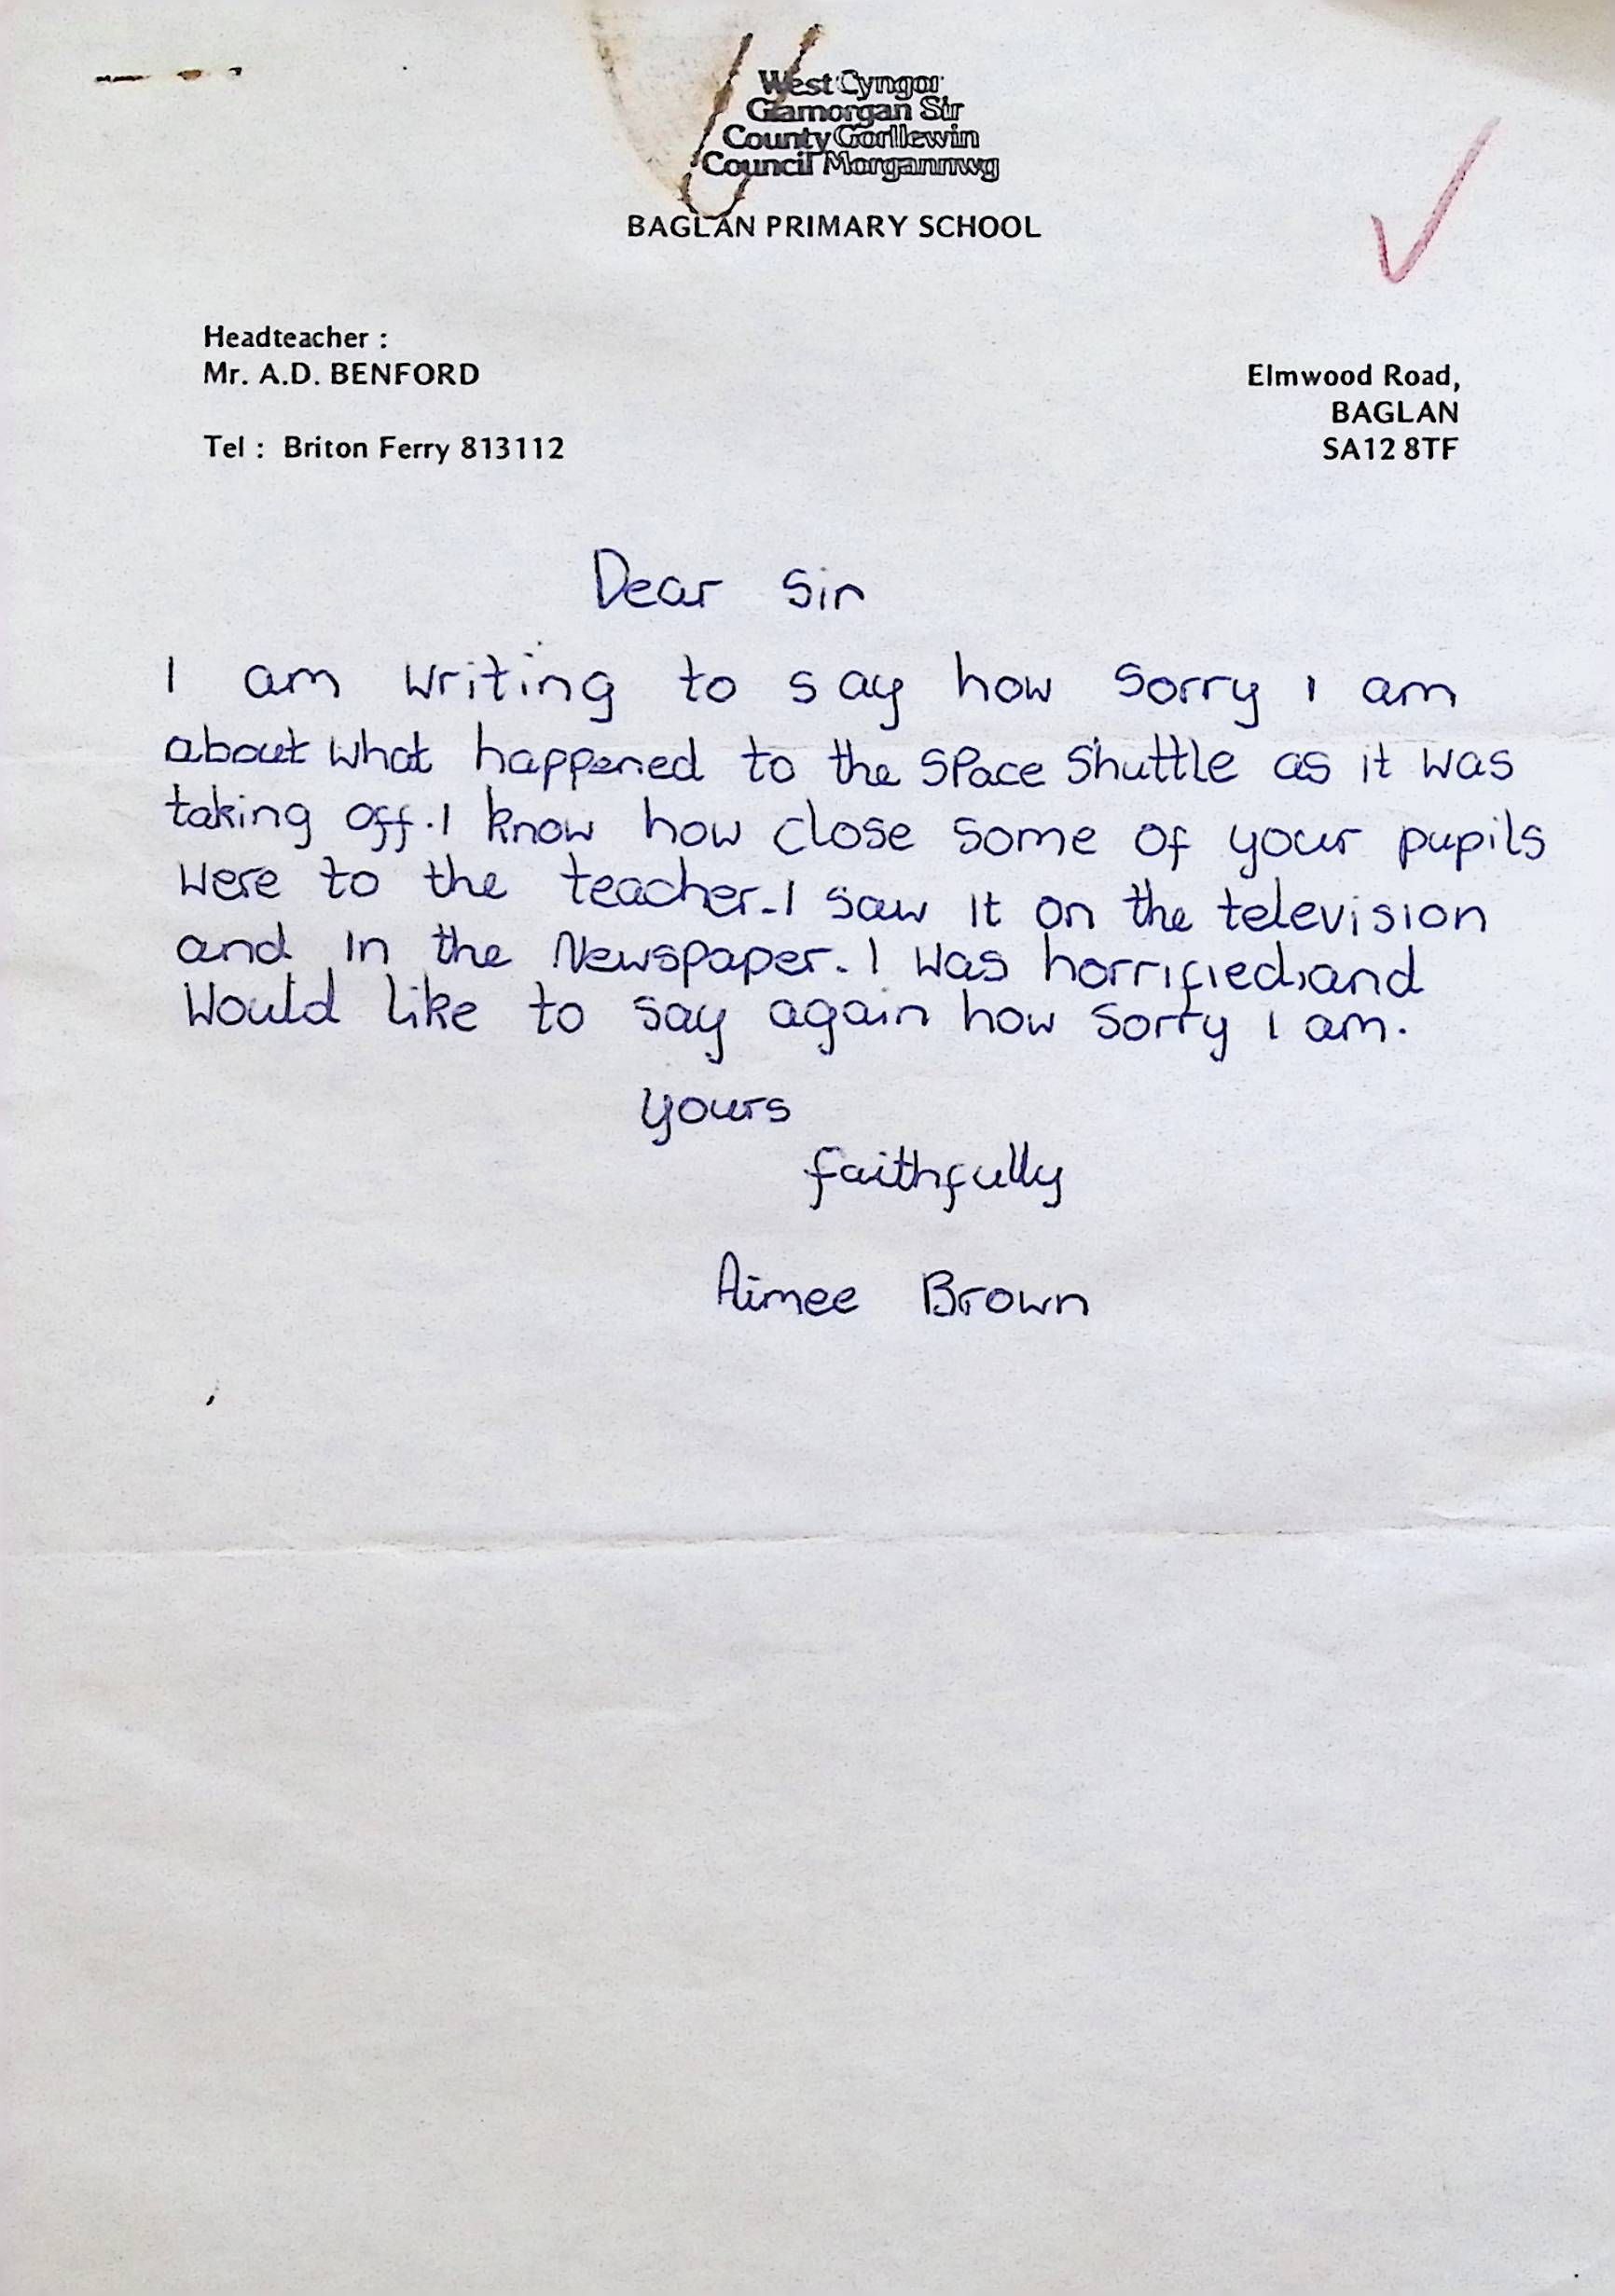 West Cyngor
Glamorgan Sir
County Gorllewin
Council Morgannwg
BAGLAN PRIMARY SCHOOL
Headteacher :
Mr. A.D. BENFORD
Tel : Briton Ferry 813112
Elmwood Road,
BAGLAN
SA12 8TF
Dear Sir
I am writing to say how sorry I am
about what happened to the space shuttle as it was
taking off. I know how close some of your pupils
were to the teacher. I saw it on the television
and in the Newspaper. I was horrified, and
would like to say again how sorry I am.
yours
faithfully
Aimee Brown